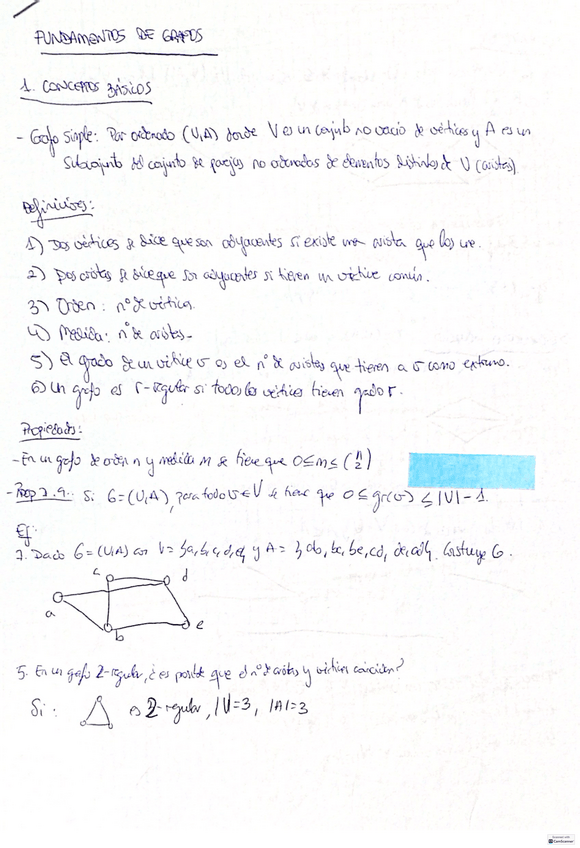 FUNDAMENTOS DE GRAFOS
1. CONCEPTOS BÁSICOS
- Grafo simple: Par ordenado (V,A) donde V es un conjunto no vacío de vértices y A es un
Subconjunto del conjunto de parejas no ordenadas de elementos distintos de V (aristas).
Definiciones:
1) Dos vértices se dice que son adyacentes si existe una arista que los une.
2) Dos aristas se dice que son adyacentes si tienen un vértice común.
3) Orden: nº de vértices.
4) Medida: nº de aristas.
5) El grado de un vértice v es el nº de aristas que tienen a v como extremo.
6) Un grafo es r-regular si todos los vértices tienen grado r.
Propiedades:
- En un grafo de orden n y medida m se tiene que 0≤m≤(n 2)
- Prop 1.9.: Si G=(V,A), para todo v∈V se tiene que 0≤gr(v)≤|V|-1.
Ej:
1. Dado G=(V,A) con V={a,b,c,d,e} y A={ab,bc,be,cd,de,ad}. Construye G.
c
d
a
b
e
5. En un grafo 2-regular, ¿es posible que el nº de aristas y vértices coinciden?
Si: es 2-regular, |V|=3, |A|=3
CamScanner